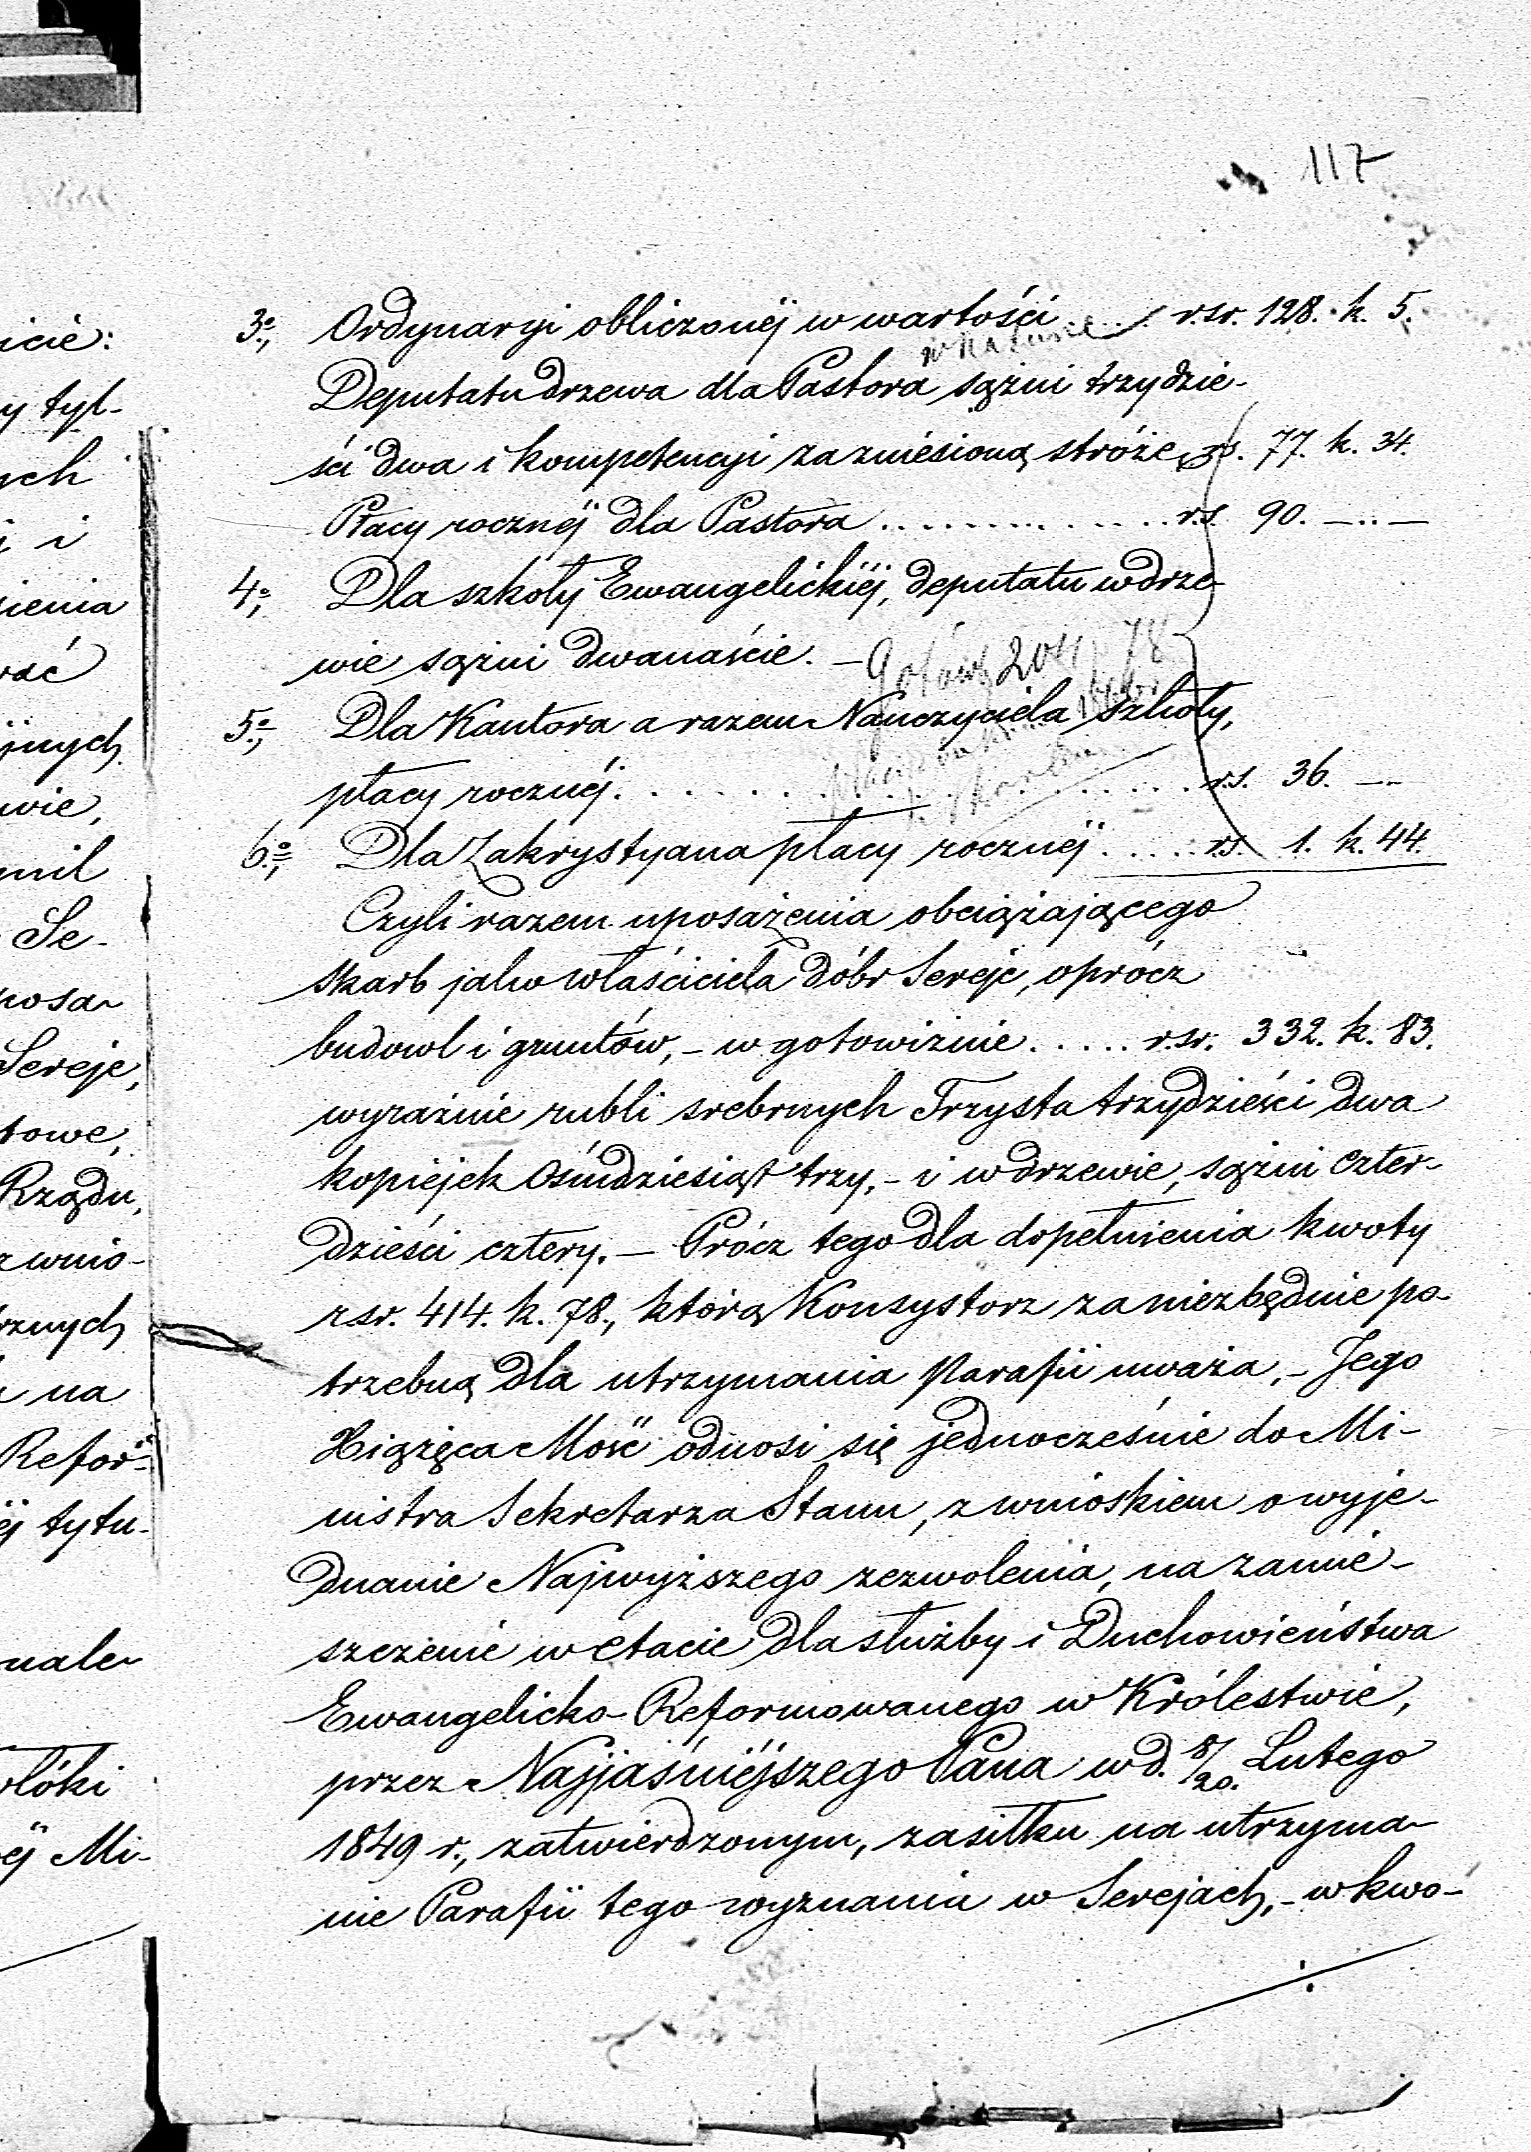 117
3º, Ordynaryi obliczonéj w wartości . . . . r.sr. 128. k. 5.
w naturze
Deputatu drzewa dla Pastora sążni trzydzie-
ści dwa i kompetencyi za zniesioną stróże rs. 77. k. 34.
Płacy rocznéj dla Pastora . . . . . . . . . . . . r.s. 90. — .. —
4º, Dla szkoły Ewangelickiéj, deputatu w drze-
wie sążni dwanaście. —
gotówk 204 78
5º, Dla Kantora a razem Nauczyciela szkoły,
płacy rocznéj . . . . . . . . . . . . . . . . r.s. 36. —
6º, Dla Zakrystyana płacy rocznéj . . . . . r.s. 1. k. 44.
Czyli razem uposażenia obciążającego
skarb jako właściciela dóbr Sereje, oprócz
budowl i gruntów, - w gotowiźnie . . . . . r.sr. 332. k. 83.
wyraźnie rubli srebrnych Trzysta trzydzieści dwa
kopiejek ośmdziesiąt trzy, - i w drzewie, sążni czter-
dzieści cztery. — Prócz tego dla dopełnienia kwoty
rsr. 414. k. 78., którą Konsystorz za niezbędnie po-
trzebną dla utrzymania Parafii uważa, - Jego
Xiążęca Mość odnosi się jednocześnie do Mi-
nistra Sekretarza Stanu, z wnioskiem o wyje-
dnanie Najwyższego zezwolenia, na zamie-
szczenie w etacie dla służby i Duchowieństwa
Ewangelicko-Reformowanego w Królestwie,
przez Najjaśniéjszego Pana w d. 8/20. Lutego
1849 r., zatwierdzonym, zasiłku na utrzyma-
nie Parafii tego wyznania w Serejach, - w kwo-
icie:
y tyl-
ych
i
ienia
ość
jnych
wie,
mil
Se-
posa-
Sereje,
towe,
Rządu,
z wnio-
rznych
na
Refor-
éj tytu-
nale-
włóki
éj Mi-